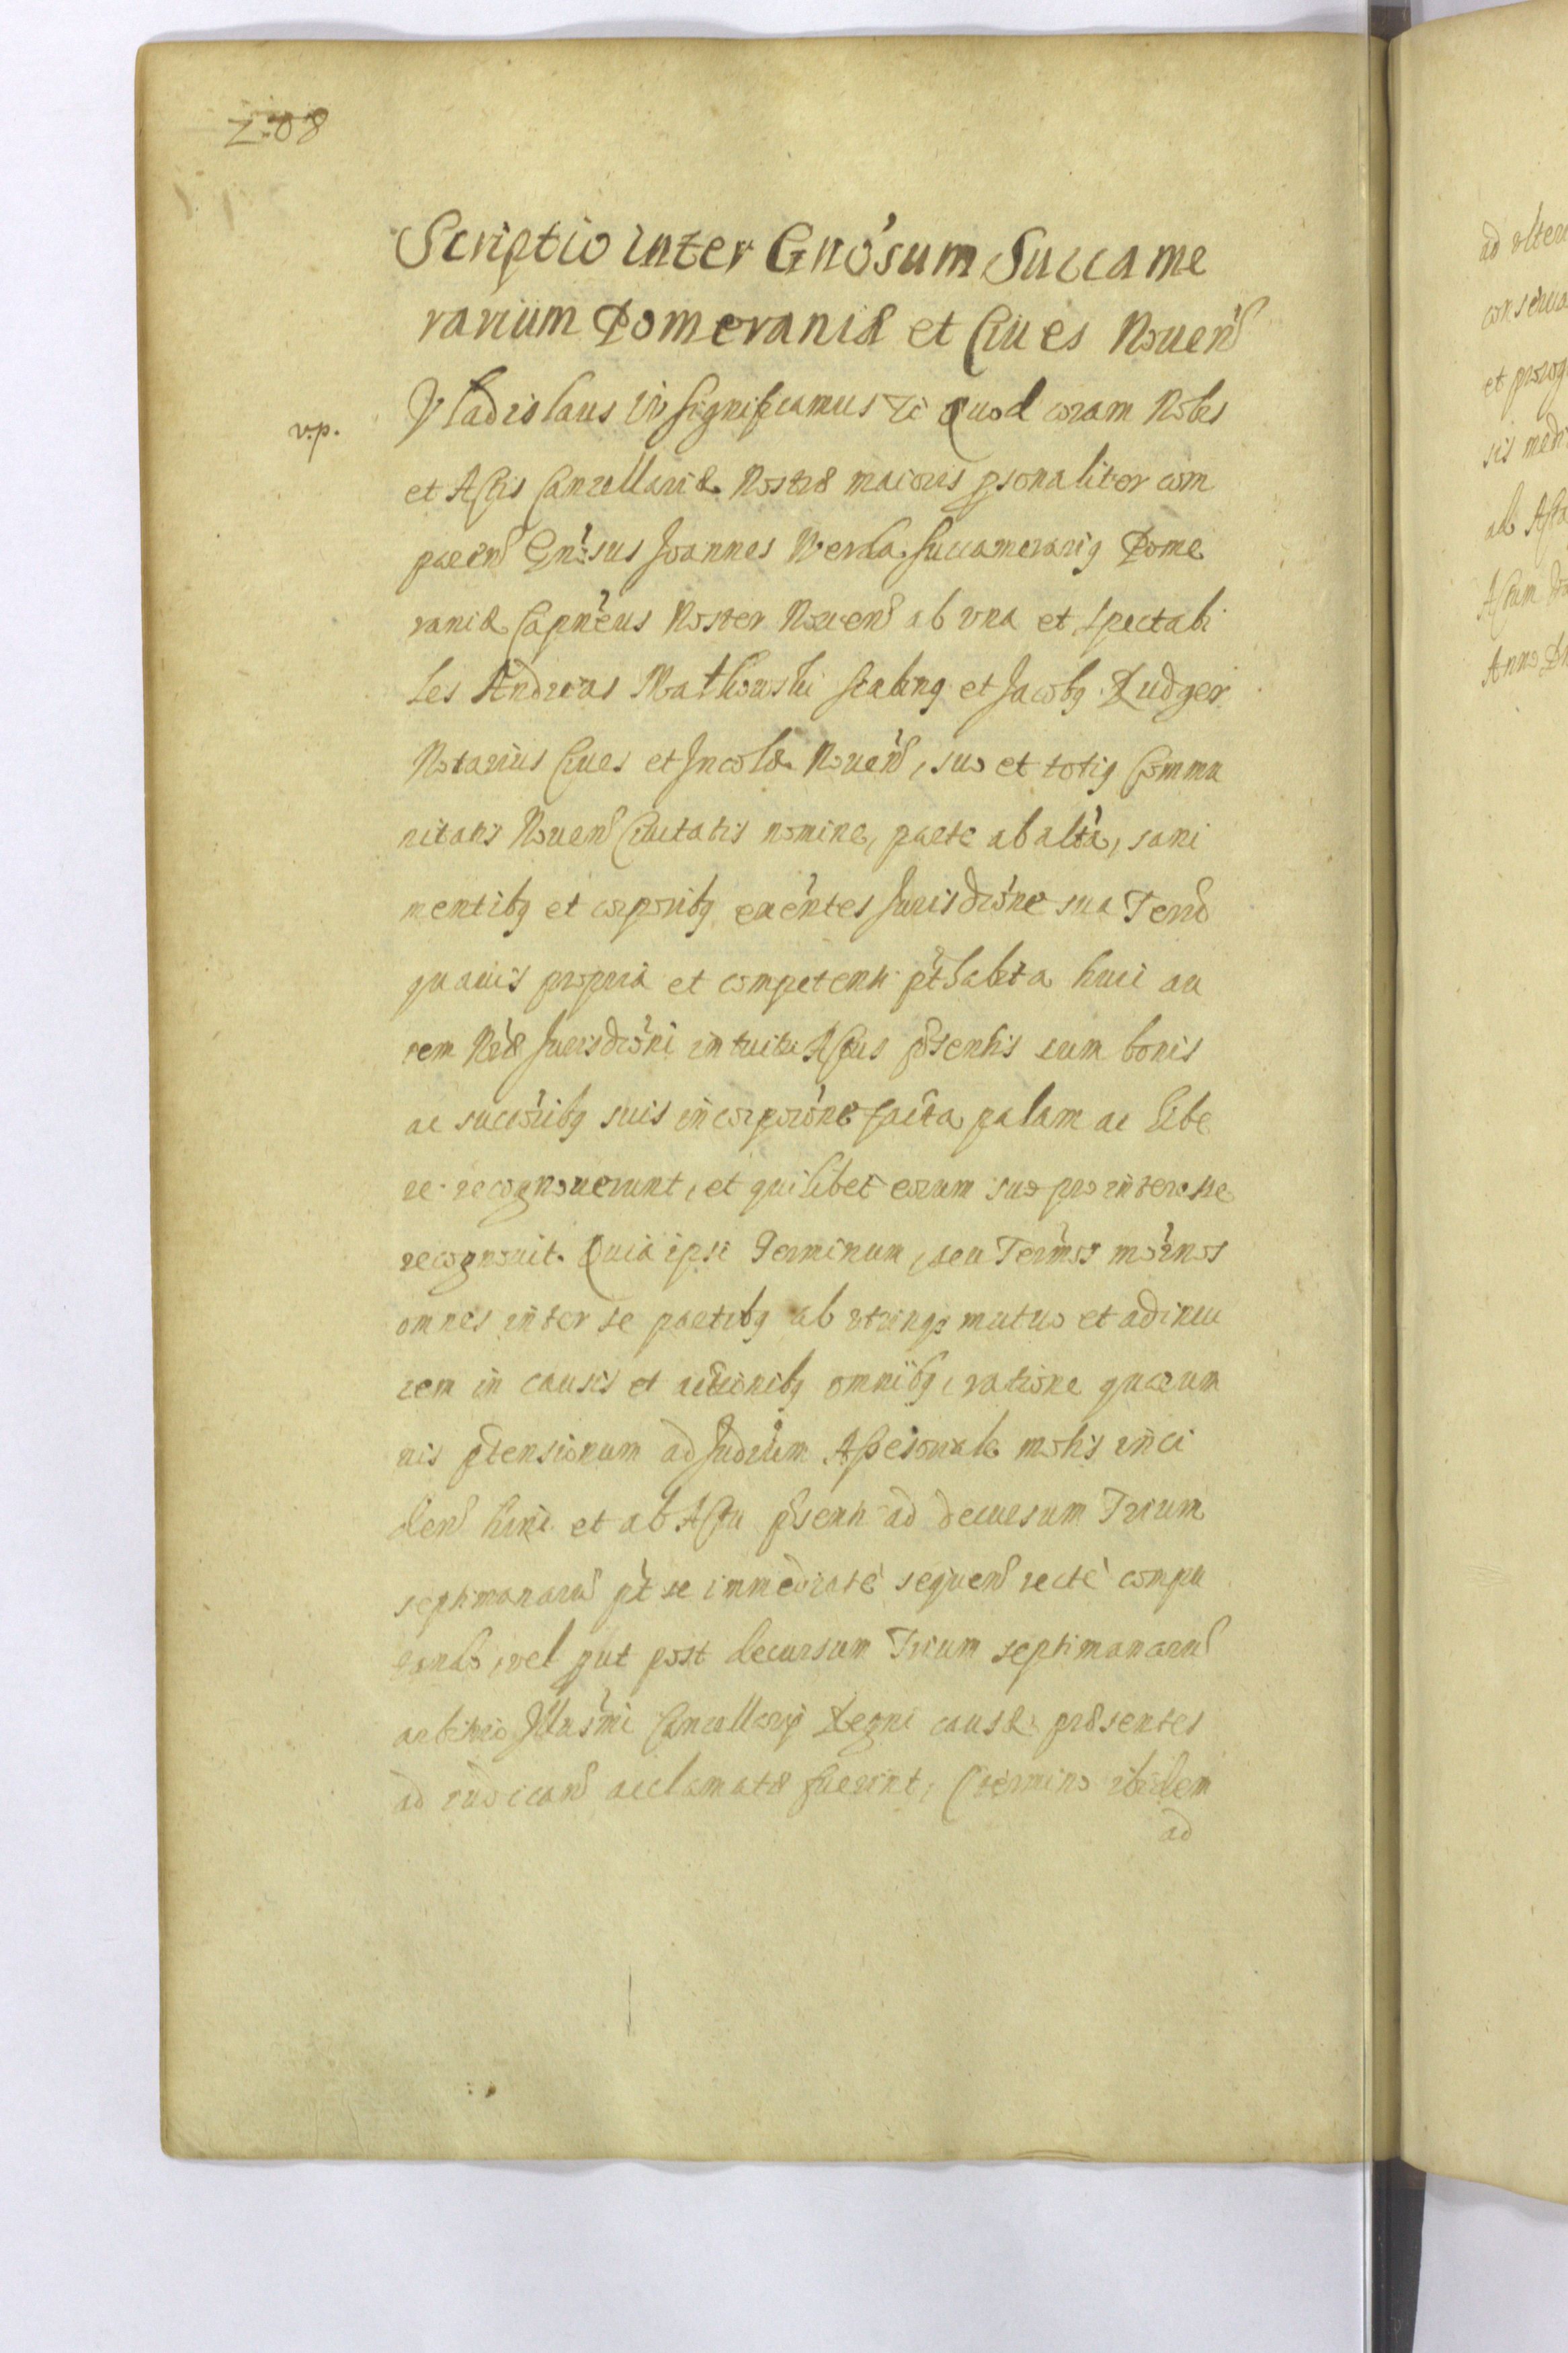 208
Scriptio inter Gnôsum Succame
rarium Pomeraniæ et Ciues Nouen
v.p.
Vladislaus IV Significamus &c Quod coram Nobis
et Actis Cancellariæ Nostræ maioris psonaliter com
paren Gnôsus Joannes Werda Succamerarig Pome
raniæ Capnêus Noster Nouen ab vna et Spectabi
les Andreas Matkowski Scabing et Jacobg Rudger
Notarius Ciues et Incolæ Nouen, suo et totig Commu
nitatis Nouen Ciuitatis nomine, parte ab altâ, sani
mentibg et corporibg exêntes Jurisdiône sua Terrê
quauis propria et competenti pthabita huic au
tem Nræ Jurisdiôni intuitu Actus psentis cum bonis
ac succôribg suis incorporône facta palam ac libe
re recognouerunt, et quilibet eorum suo pro interesse
recognouit. Quia ipsi Terminum, seu Termos môrnos
omnes inter se partibg ab vtrinqz mutuo et adinui
cem in causis et actionibg omnibg, ratione quarum
uis ptensionum ad Judicium Assessoriale motis inci
den hinc et ab Actu psenti ad decursum Trium
septimanaru pt se immediatè sequen rectè compu
tando, vel put post decursum Trium septimanaru
arbitrio Illusmi Cancellarij Regni causæ præsentes
ad iudican acclamatæ fuerint, Termino ibidem
ad
ad vlter
conserua
et prorog
sis medi
ab Acta
Actum
Anno D